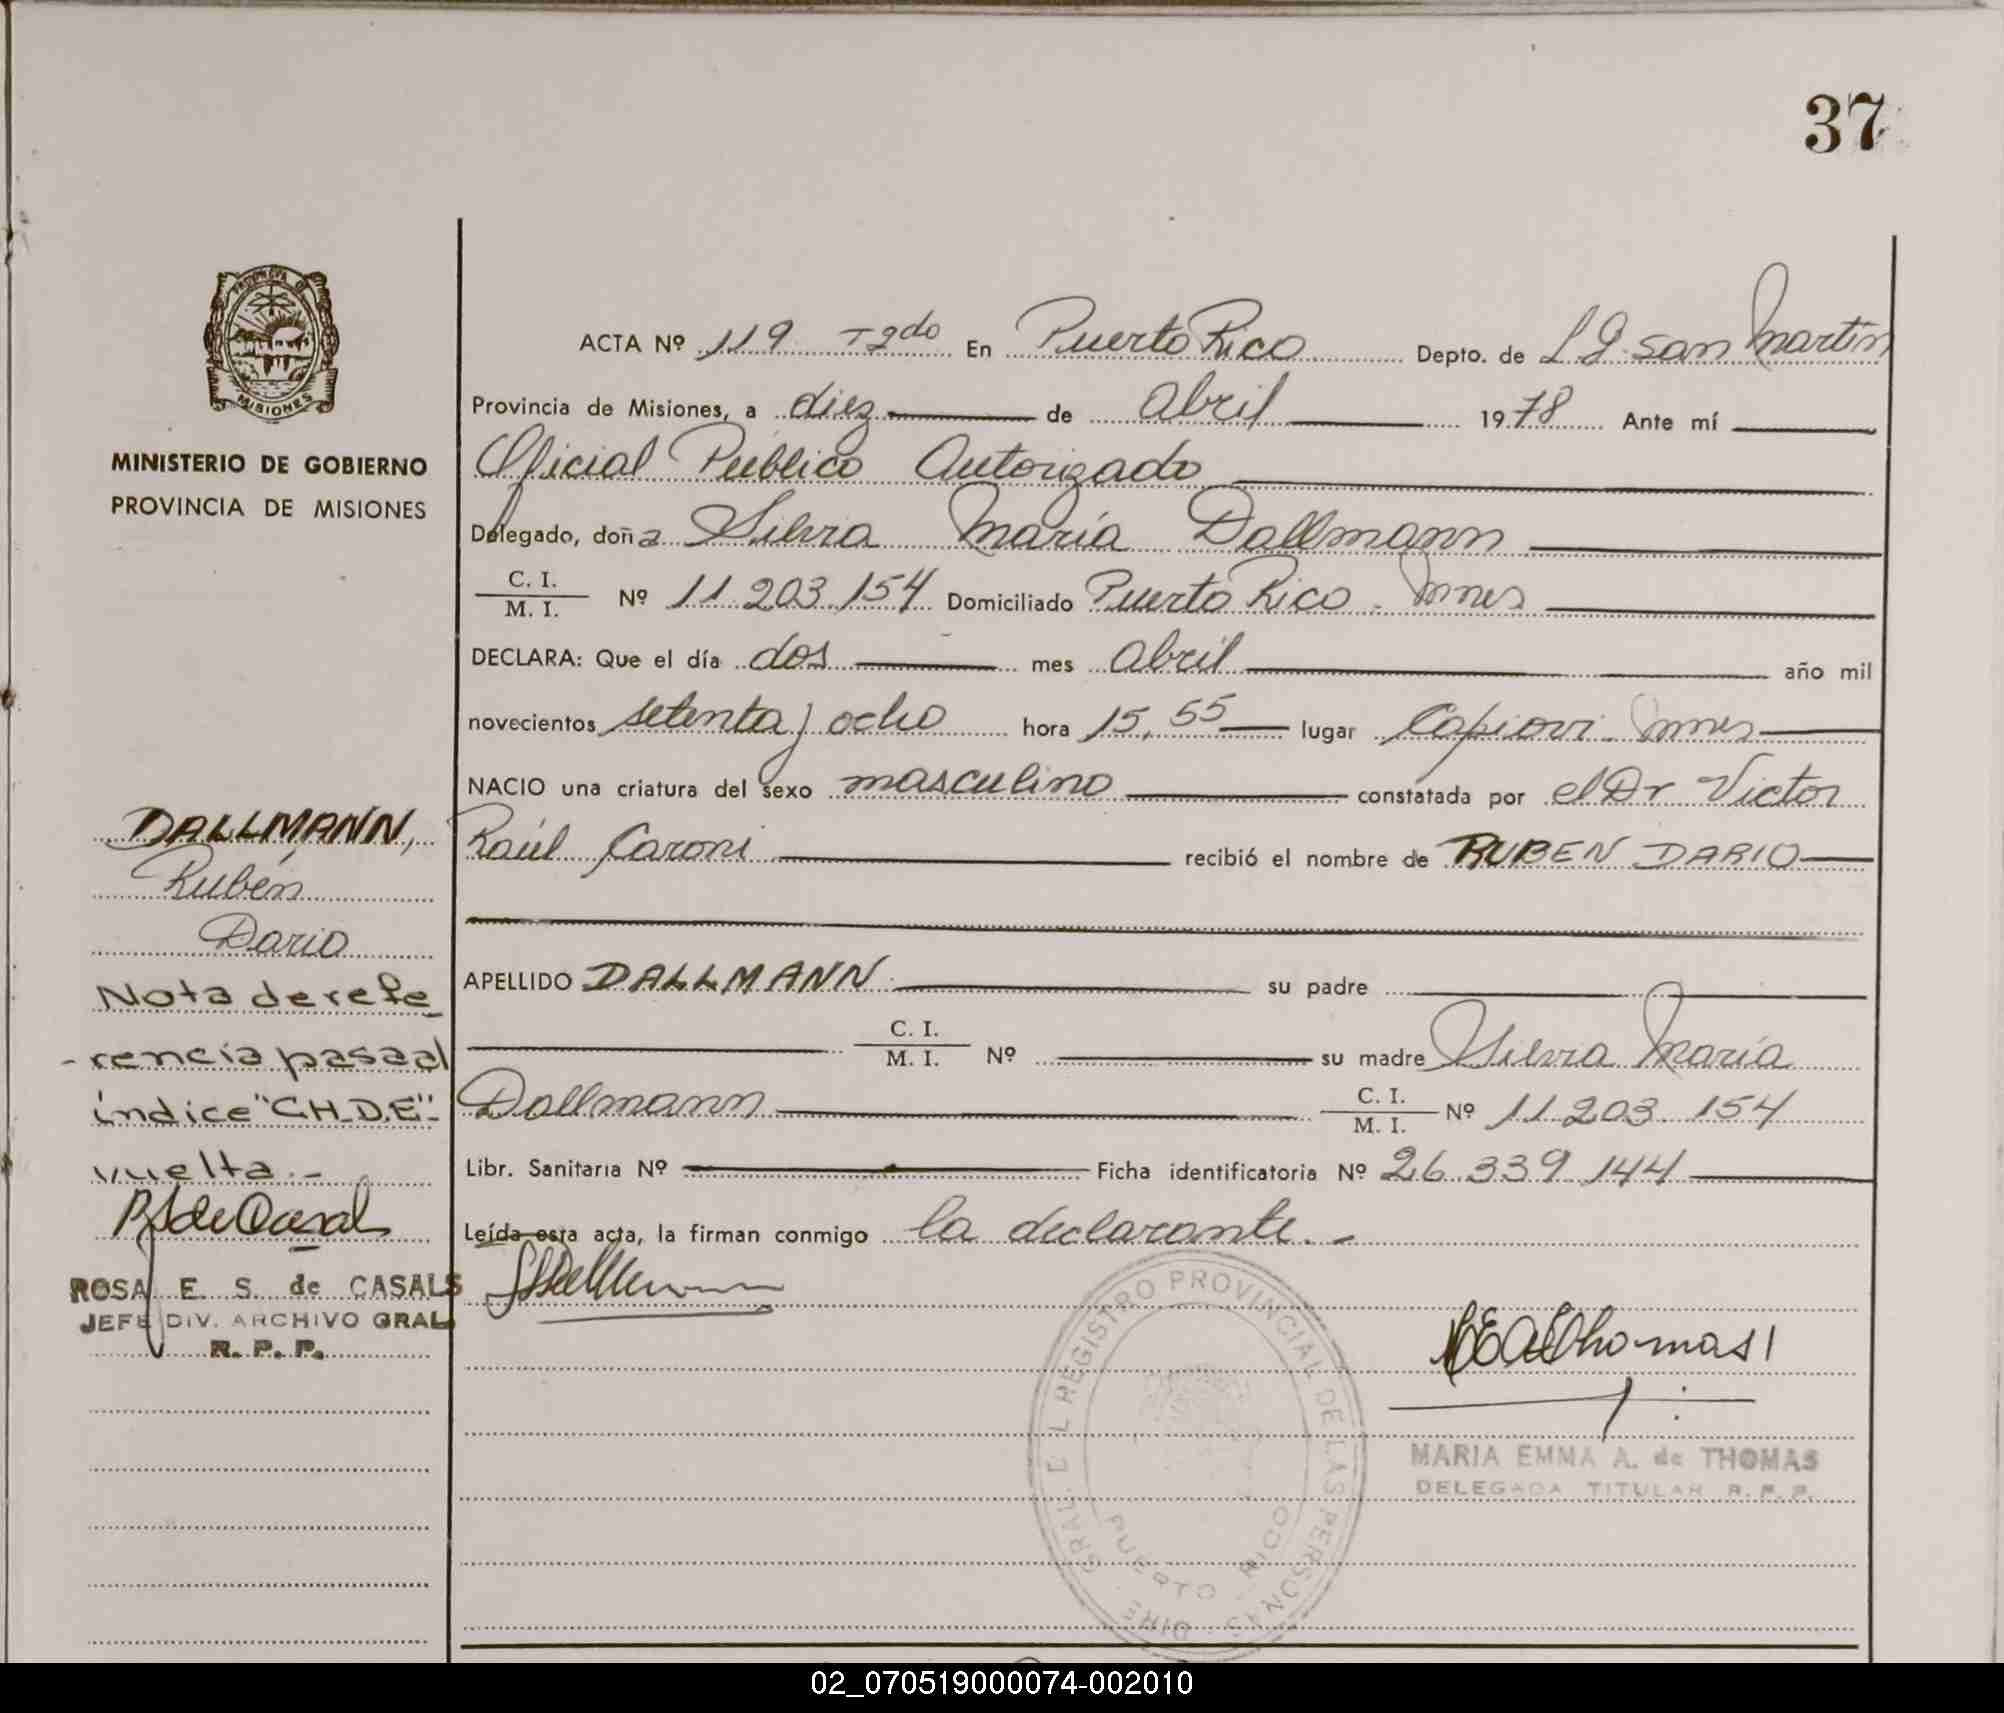 37
PROVINCIA DE
MISIONES
MINISTERIO DE GOBIERNO
PROVINCIA DE MISIONES
ACTA Nº 119 T 2do En Puerto Rico Depto. de L G San Martín
Provincia de Misiones, a diez de Abril 1978 Ante mí
Oficial Público Autorizado
Delegado, doña Silvia María Dallmann
C. I.
M. I. Nº 11.203.154 Domiciliado Puerto Rico - Mnes
DECLARA: Que el día dos mes Abril año mil
novecientos setenta y ocho hora 15,55 lugar Capiovi - Mnes
NACIO una criatura del sexo masculino constatada por el Dr Victor
Raúl Caroni recibió el nombre de RUBEN DARIO
APELLIDO DALLMANN su padre
C. I.
M. I. Nº su madre Silvia María
Dallmann C. I.
M. I. Nº 11.203.154
Libr. Sanitaria Nº Ficha identificatoria Nº 26.339.144
Leída esta acta, la firman conmigo la declarante.-
DALLMANN,
Rubén
Dario
Nota de refe
-rencia pasa al
índice "CH.D.E"-
vuelta.-
ROSA E. S. de CASALS
JEFE DIV. ARCHIVO GRAL
R. P. P.
DIRE. GRAL. DEL REGISTRO PROVINCIAL DE LAS PERSONAS
PUERTO RICO
MARIA EMMA A. de THOMAS
DELEGADA TITULAR R. P. P.
02_070519000074-002010